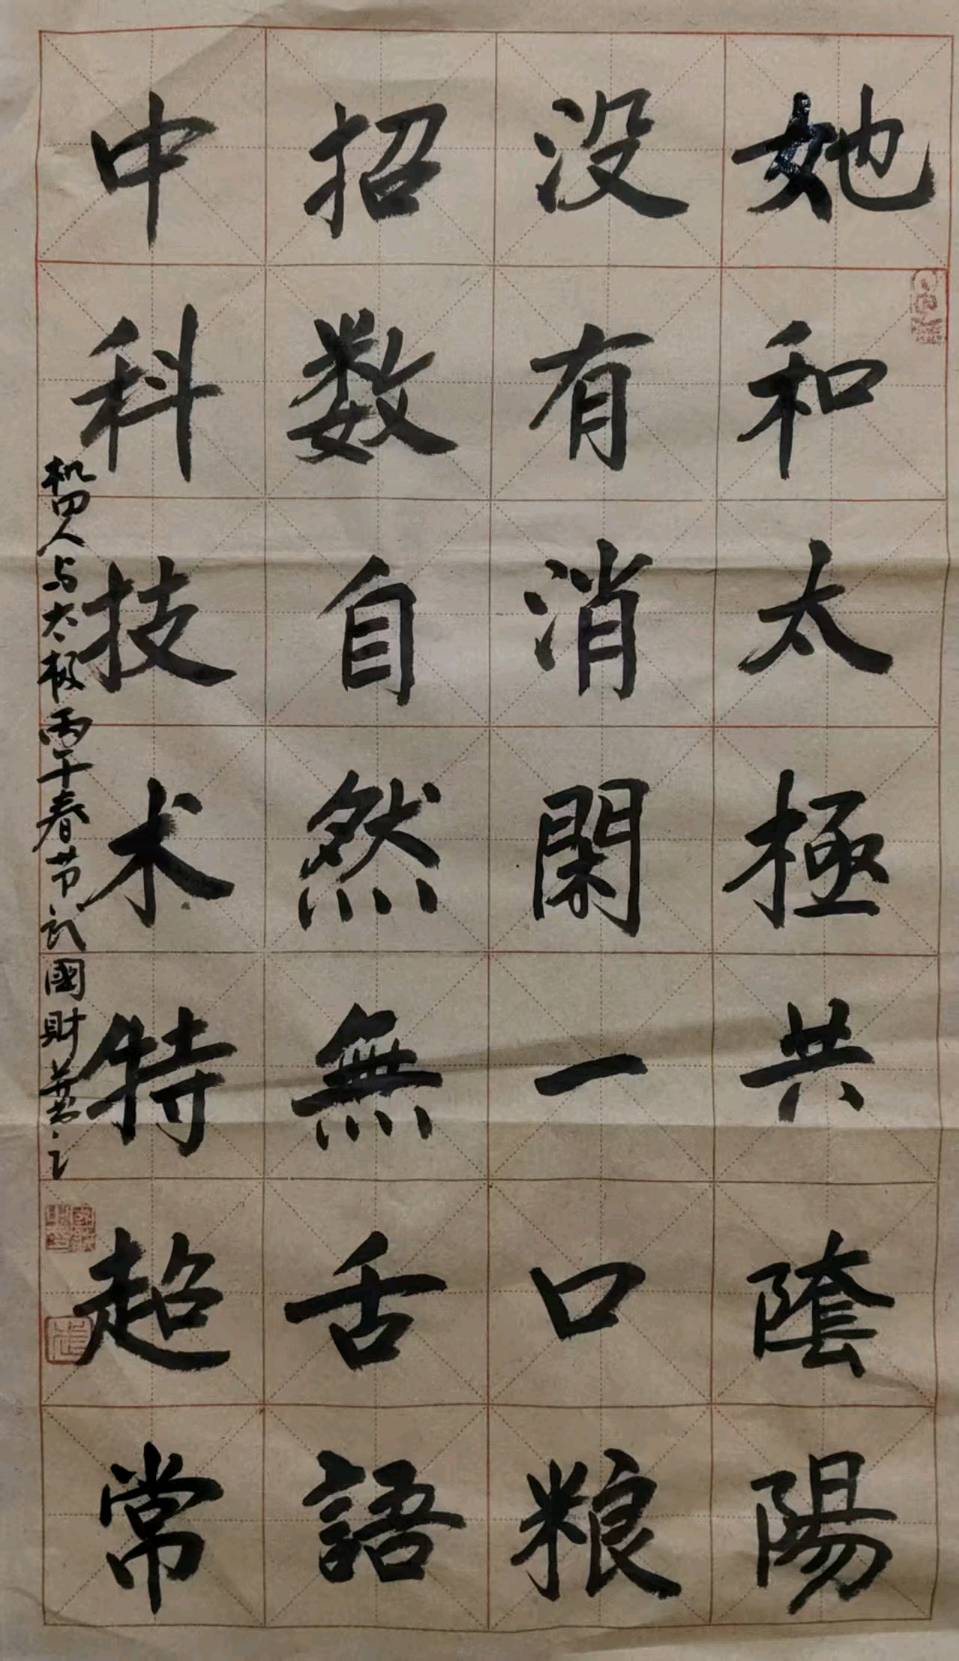 她和太極共陰陽
没有消閑一口粮
招数自然無舌語
中科技术特超常
机四人与太极丙午春节武國財書之